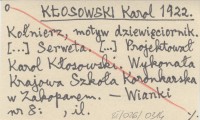 0
KŁOSOWSKI Karol 1922.
Kołnierz, motyw dziewięciornik.
[...] Serweta. [...] Projektował
Karol Kłosowski. Wykonała
Krajowa Szkoła Koronkarska
w Zakopanem. — Wianki
nr 8: , il.